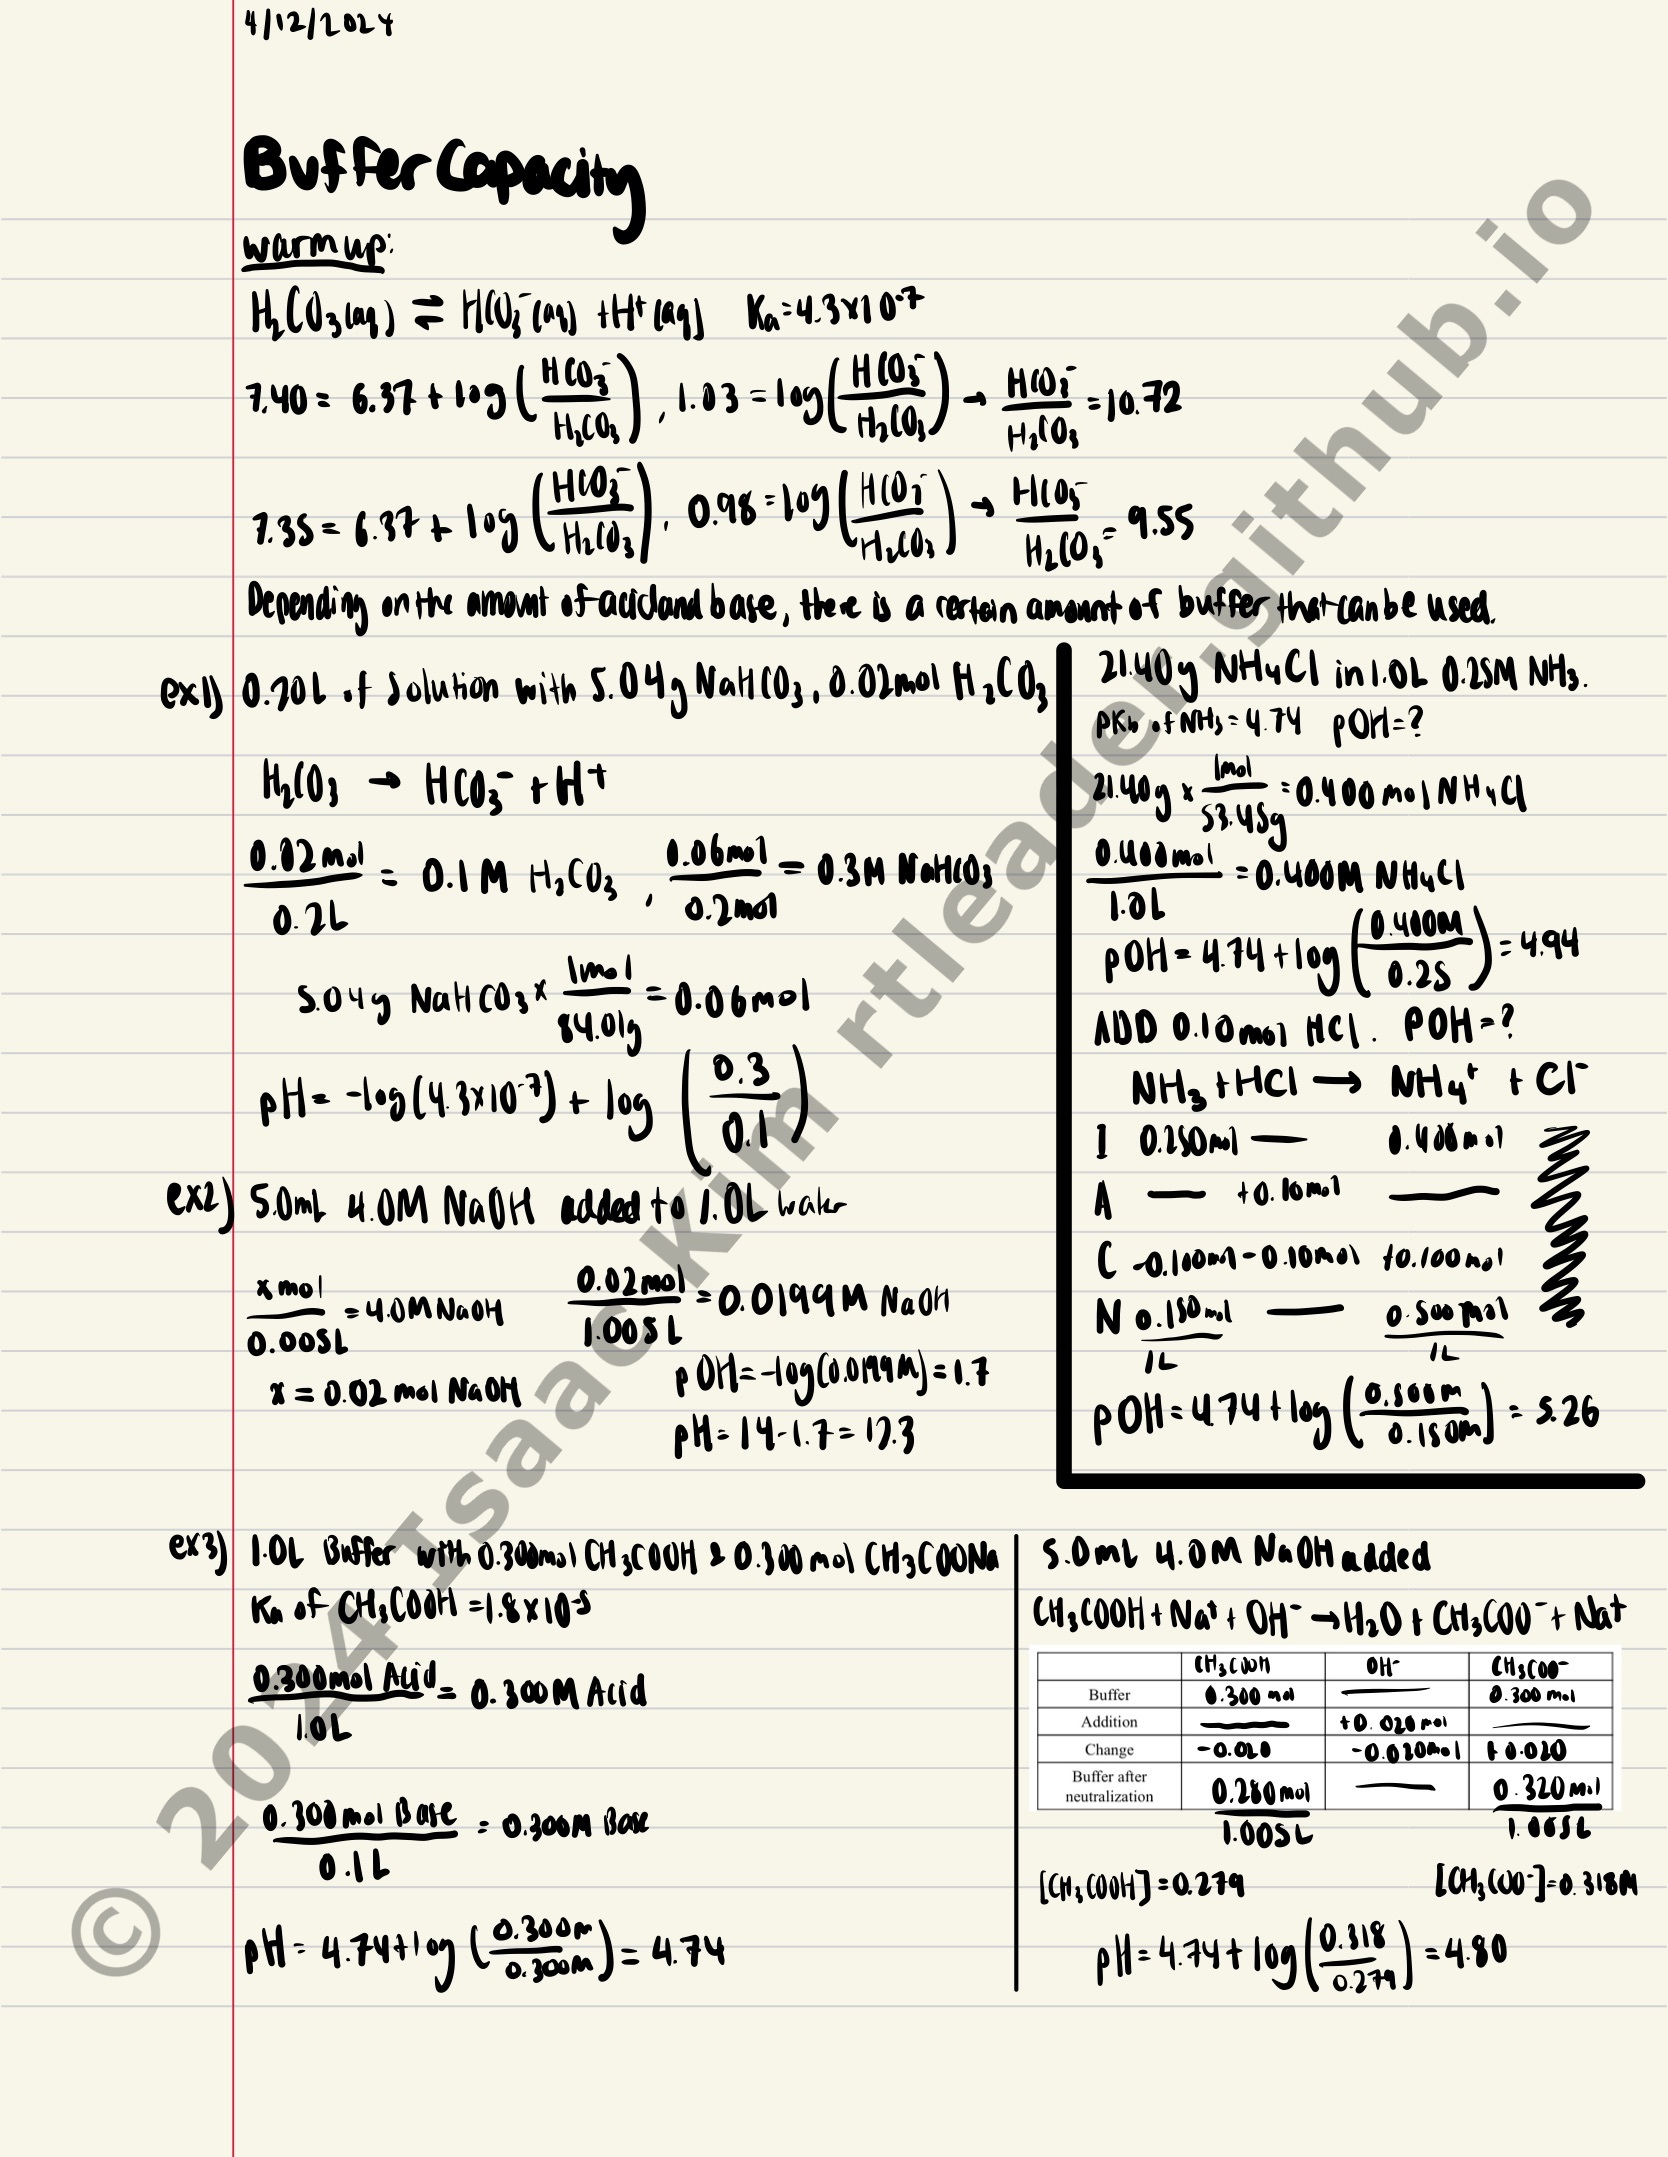 4/12/2024
Buffer Capacity
warm up:
H₂CO₃(aq) ⇌ HCO₃⁻(aq) + H⁺(aq) Ka = 4.3×10⁻⁷
7.40 = 6.37 + log (HCO₃⁻/H₂CO₃), 1.03 = log (HCO₃⁻/H₂CO₃) → HCO₃⁻/H₂CO₃ = 10.72
7.35 = 6.37 + log (HCO₃⁻/H₂CO₃), 0.98 = log (HCO₃⁻/H₂CO₃) → HCO₃⁻/H₂CO₃ = 9.55
Depending on the amount of acid and base, there is a certain amount of buffer that can be used.
ex1) 0.20L of solution with 5.04g NaHCO₃, 0.02mol H₂CO₃
H₂CO₃ → HCO₃⁻ + H⁺
0.02mol/0.2L = 0.1M H₂CO₃, 0.06mol/0.2mol = 0.3M NaHCO₃
5.04g NaHCO₃ × 1mol/84.01g = 0.06mol
pH = -log(4.3×10⁻⁷) + log (0.3/0.1)
21.40g NH4Cl in 1.0L 0.25M NH₃.
pKb of NH₃ = 4.74 pOH = ?
21.40g × 1mol/53.45g = 0.400mol NH4Cl
0.400mol/1.0L = 0.400M NH4Cl
pOH = 4.74 + log (0.400M/0.25) = 4.94
ADD 0.10mol HCl. POH = ?
NH₃ + HCl → NH₄⁺ + Cl⁻
I 0.250mol — 0.400mol
A — +0.10mol —
C -0.100mol -0.10mol +0.100mol
N 0.150mol/1L — 0.500mol/1L
pOH = 4.74 + log (0.500M/0.150M) = 5.26
ex2) 5.0mL 4.0M NaOH added to 1.0L water
x mol/0.005L = 4.0M NaOH 0.02mol/1.005L = 0.0199M NaOH
x = 0.02 mol NaOH pOH = -log(0.0199M) = 1.7
pH = 14 - 1.7 = 12.3
ex3) 1.0L Buffer with 0.300mol CH₃COOH & 0.300mol CH₃COONa
Ka of CH₃COOH = 1.8×10⁻⁵
0.300mol Acid/1.0L = 0.300M Acid
0.300mol Base/0.1L = 0.300M Base
pH = 4.74 + log (0.300M/0.300M) = 4.74
5.0mL 4.0M NaOH added
CH₃COOH + Na⁺ + OH⁻ → H₂O + CH₃COO⁻ + Na⁺
CH₃COOH OH⁻ CH₃COO⁻
Buffer 0.300 mol — 0.300 mol
Addition — +0.020mol —
Change -0.020 -0.020mol +0.020
Buffer after
neutralization 0.280mol/1.005L — 0.320mol/1.005L
[CH₃COOH] = 0.279 [CH₃COO⁻] = 0.318M
pH = 4.74 + log (0.318/0.279) = 4.80
© 2024 Isaac Kim rtleader.github.io